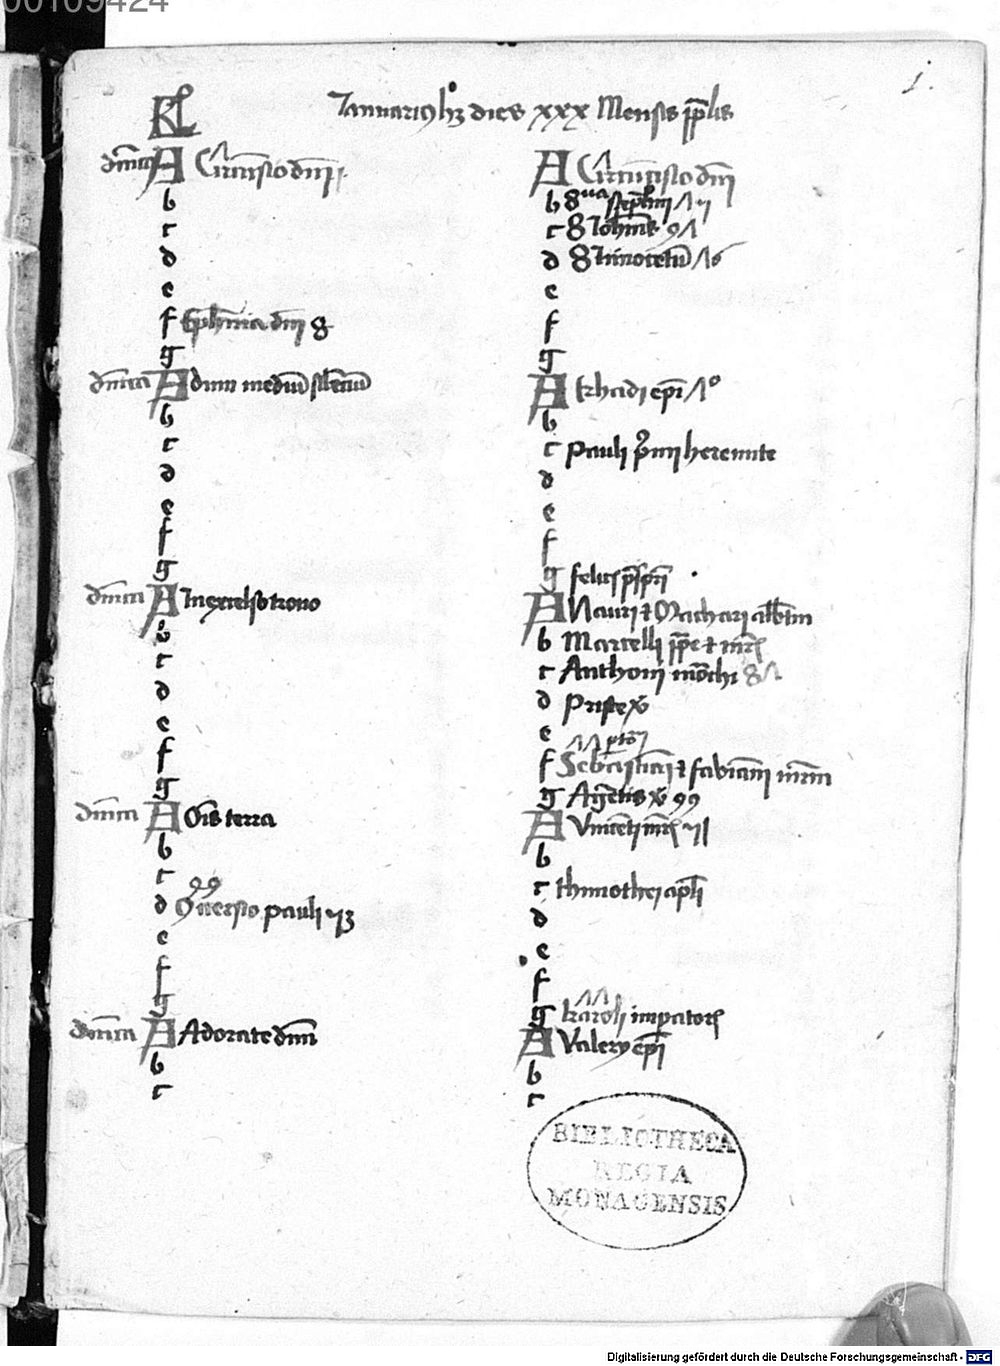 00109424
1.
KL Januarius hꝫ dies xxx Mensis
dnica A Circumsisio dni
b
c
d
e
f Epħania dni 8
g
dnica A dum mediu silenciu
b
c
d
e
f
g
dnica A In excelso trono
b
c
d
e
f
g
dnica A Ois terra
b
c
d Conuersio pauli
e
f
g
dnica A Adorate dnm
b
c
A Circumsisio dni
b 8ua stephani
c 8 Iohanis
d 8 Innocetu
e
f
g
A Erhadi epi
b
c Pauli primi heremite
d
e
f
g felicis
A Mauri et Machari abbtm
b Marcelli ppe et mris
c Anthonii mochi
d Prisce
e
f Sebastiani et fabiani mrm
g Agnetis
A Vincenti mris
b
c thimothei apli
d
e
f
g karoli imperatoris
A Valery epi
b
c
BIBLIOTHECA
REGIA
MONACENSIS
Digitalisierung gefördert durch die Deutsche Forschungsgemeinschaft - DFG